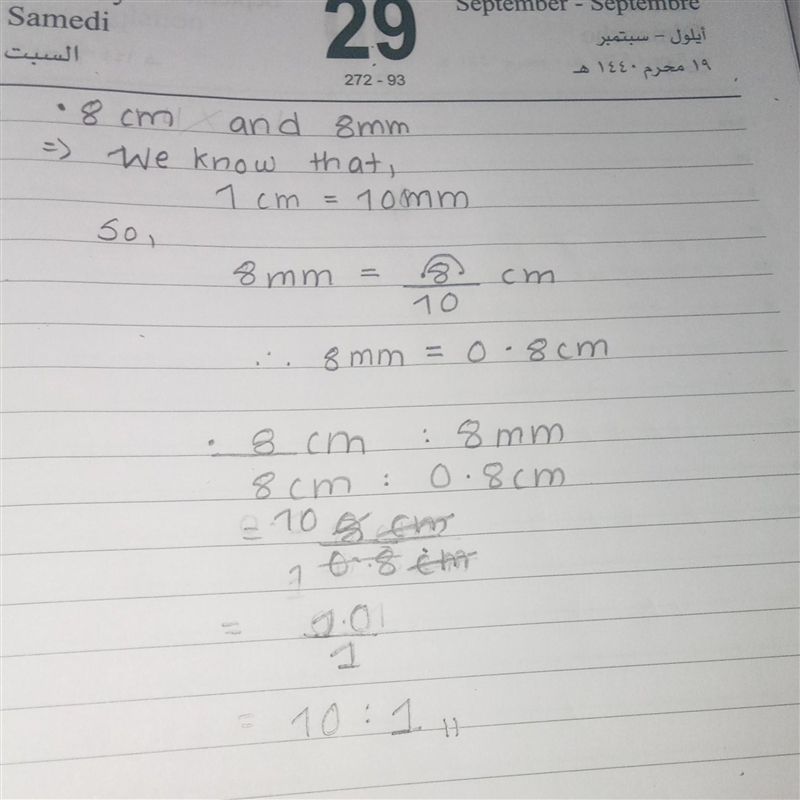 Samedi
السبت
29
272 - 93
September - Septembre
أيلول - سبتمبر
١٩ محرم ١٤٤٠ هـ
• 8 cm and 8mm
=> We know that,
1 cm = 10mm
So,
8mm = 8/10 cm
∴ 8mm = 0.8cm
• 8 cm : 8mm
8cm : 0.8cm
= 10 8 cm
1 0.8 cm
=
1
= 10 : 1